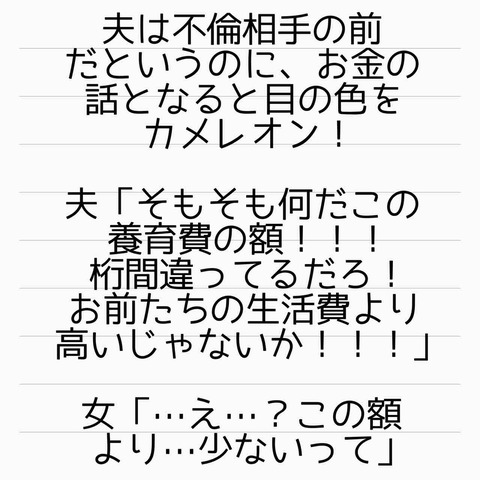 夫は不倫相手の前
だというのに、お金の
話となると目の色を
カメレオン！
夫「そもそも何だこの
養育費の額！！！
桁間違ってるだろ！
お前たちの生活費より
高いじゃないか！！！」
女「…え…？この額
より…少ないって」